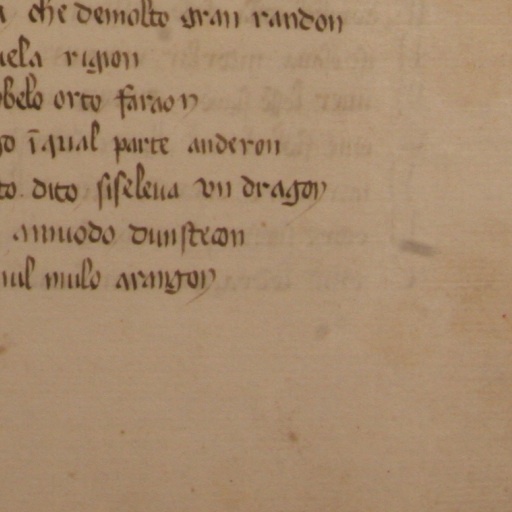 che demolto gran randon
uela rigion
obelo orto faraon
go ĩqual parte anderon
to dito siseleua vn dragon
amuodo dunstecon
uil mulo arangon